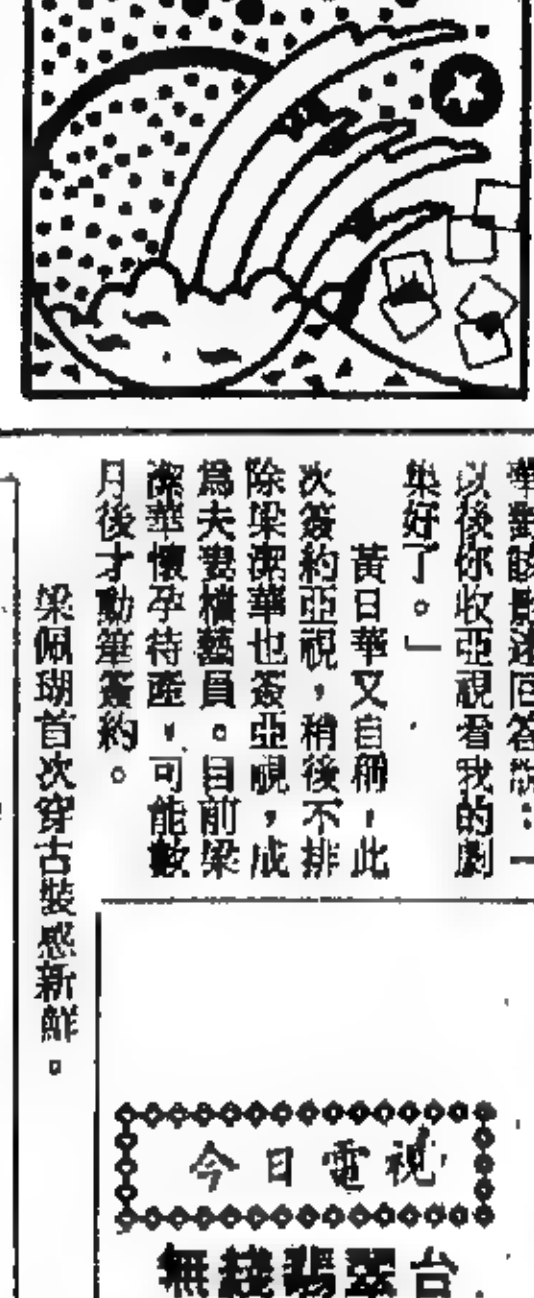 華對該影迷回答說：「
以後你收亞視看我的劇
集好了。」
黃日華又自稱，此
次簽約亞視，稍後不排
除梁潔華也簽亞視，成
爲夫妻檔藝員。目前梁
潔華懷孕待產，可能數
月後才動筆簽約。
梁佩瑚首次穿古裝感新鮮。
今日電視
無綫翡翠台